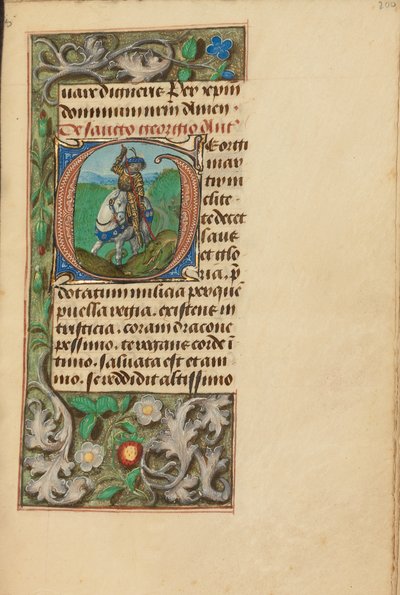 200
uari digneris Per xpm
dominum nrm Amen ·
De sancto georgio Ant'
Georgi
mar
tyr in
clite
te decet
laus
et glo
ria. p̄
dotatum milicia per quē
puella regia. existens in
tristicia. coram dracone
pessimo. corde ī
timo. saluata est et ani
mo. se reddidit altissimo